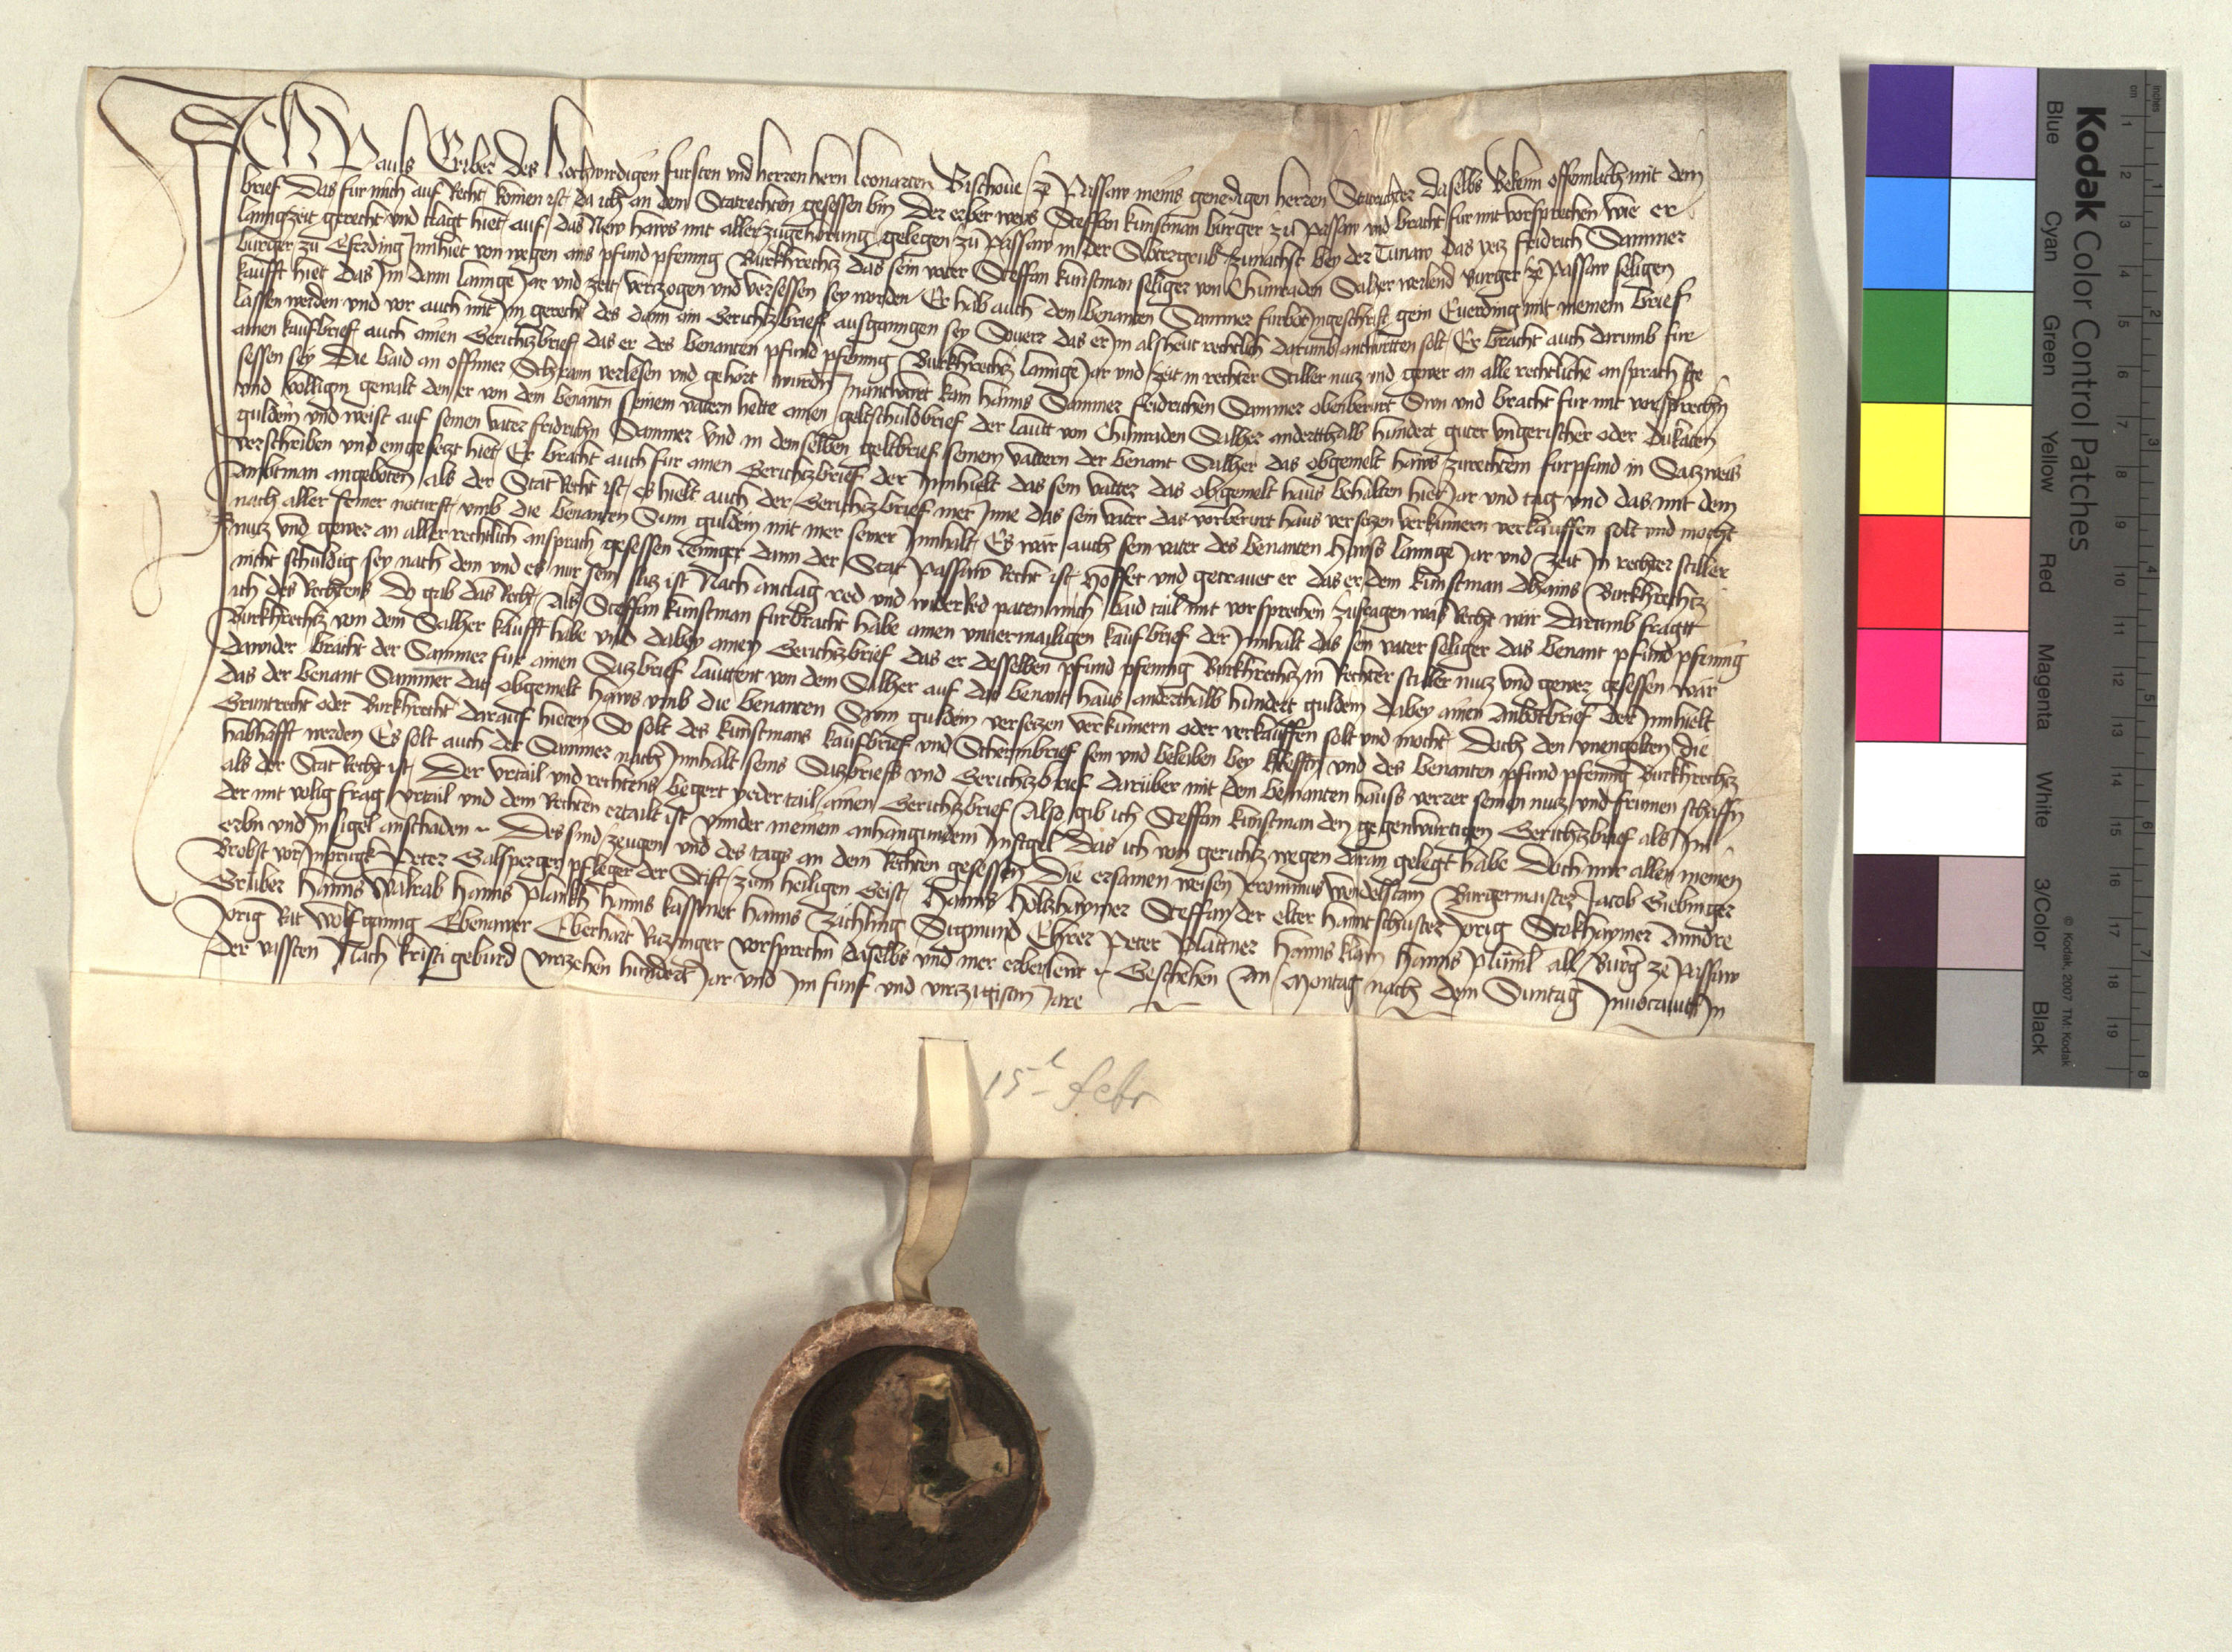 Ich Pauls Criber des Hochwirdigen fursten und herren hern leonarten Bischove ze Passaw meins genedigen herren Statrichter daselbs Bekenn offennlich mit dem
brief Das fur mich auf Recht komen ist da ich an dem Statrechten gesessen bin Der erber weys Steffan kunstman burger zu Passaw und bracht fur mit vorsprechen wie er
lanngzeit gerecht und clagt hiet auf das New haws mit aller zugehorung gelegen zu Passaw in der zunachst bey der Tunaw das yetz fridrich Sammer
burger zu Eferding Innhiet von wegen ains pfund pfennig Burkhrechtz das sein vater Steffan kunstman seliger von Chunraden Salher weilend Burger ze Passaw seligen
kaufft hiet das Im dann lannge Jar und zeit verczogen und versessen sey worden Er hab auch den benanten Sammer furbot Ingeschrift gein Everding mit meinem brief
lassen werden und vor auch mit Im gerecht des dann ain Gerichtzbrief ausganngen sey Soverr das er Im als heut rechtlich darumb antwurtten solt Er bracht auch darumb fur
ainen kaufbrief auch ainen Gerichtzbrief das er des benanten pfund pfennig Burkhrechtz lannge Jar und zeit in rechter Stiller nucz und gewer an alle rechtliche ansprach ge
sessen sey Die baid an offner Schrann verlesen und gehort wurdn kam Hanns Sammer fridrichen Sammer obenberurt Sun und bracht fur mit vorsprechn
und volligm gewalt den er von dem benantn seinem vattern hette ainen geltschuldbrief der lautt von Chunraden Salher anderthalb hundert guter ungerischer oder Dukaten
guldein und weist auf seinen vater fridrichn Sammer Und in demselben geltbrief seinem vattern der benant Salher das obgemelt haws zu rechtem furpfand in Satzweis
verschriben und eingesetzt hiet Er bracht auch fur ainen Gerichtzbrief der Innhielt das sein vatter das obgemelt haus behalten hiet Jar und tag und das mit dem
ambtman angeboten als der Stat Recht ist es hielt auch der Gerichtzbrief mer Inne das sein vater das vorberurt haus versetzen verkumern verkauffen solt und mocht
nach aller seiner noturft umb die benanten Sum guldein mit mer seiner Innhalt Es wär auch sein vater des benanten hawss lannge Jar und Zeit In rechter stiller
nucz und gewer an aller rechtlich ansprach gesessen lennger dann der Stat Passaw Recht ist Hoffet und getrauet er das er dem kunstman Burkhrechtz
nicht schuldig sey nach dem und es nur sein satz ist Nach anclag red und widerred paten mich baid tail mit vorsprechen zufragen was Recht wär Darumb fragt
ich des Rechtens Do gab das Recht Als Steffan kunstman furbracht habe ainen unvermailigen kaufbrief der Innhalt das sein vater seliger das benant pfund pfennig
Burkhrechtz von dem Salher kaufft habe und dabey ainen Gerichtzbrief das er desselben pfund pfennig Burkhrechtz in Rechter stiller nucz und gewer gesessen wär
Dawider bracht der Sammer fur ainen Satzbrief lauttent von dem Salher auf das benant haus anderthalb hundert guldein dabey ainen Anbotbrief Der Innhielt
das der benant Sammer das obgemelt haws umb die benanten Sum guldein versetzen verkumern oder verkauffen solt und mocht Doch den unengolten die
Gruntrecht oder Burkhrecht darauf hieten So solt des kunstmans kaufbrief und Schermbrief sein und beleiben bey krefften und des benanten pfund pfennig Burkhrechtz
habhafft werden Es solt auch der Sammer nach Innhalt seins Satzbriefs und Gerichtzbrief darüber mit dem benanten hauss verrer seinen nucz und frumen schaffn
als der Stat Recht ist Der urtail und rechtens begert yeder tail ainen Gerichtzbrief Also gib ich Steffan kunstman den gegenwurtigen Gerichtzbrief als Im
der mit volig frag urtail und dem Rechten ertailt ist under meinem anhangundem Insigel Das ich von gerichtz wegen daran gelegt habe Doch mir allen meinen
erbn und Insigel anschaden Des sind zeugen und des tags an dem Rechten gesessen Die ersamen weisen Jeronimus Wendelstain Burgermaister Jacob Giebinger
Brobst vor Inprugk Peter Galsperger pfleger der Stift zum heiligen Geist Hanns Holtzhaymer Steffan der elter hanntschuster Jorig Stokhaymer Anndre
Gruber Hanns Walrab Hanns Plankh Hanns kasstner Hanns Zächling Sigmund Ehrer Peter Plattner Hanns klain Hanns Plüml all Burger ze Passaw
Jorig Rat Wolfganng Ebenawer Eberhart Ratzinger vorsprechn daselbs und mer erberleut Geschehen An Montag nach dem Suntag Invocavit In
der vassten Nach kristi geburd virczehen hundert Jar und Im funf und virczigistm Jare
15t febr
Kodak Color Control Patches
Blue Cyan Green Yellow Red Magenta White 3/Color Black
© Kodak, 2007 TM: Kodak
cm 1 2 3 4 5 6 7 8 9 10 11 12 13 14 15 16 17 18 19
inches 1 2 3 4 5 6 7 8